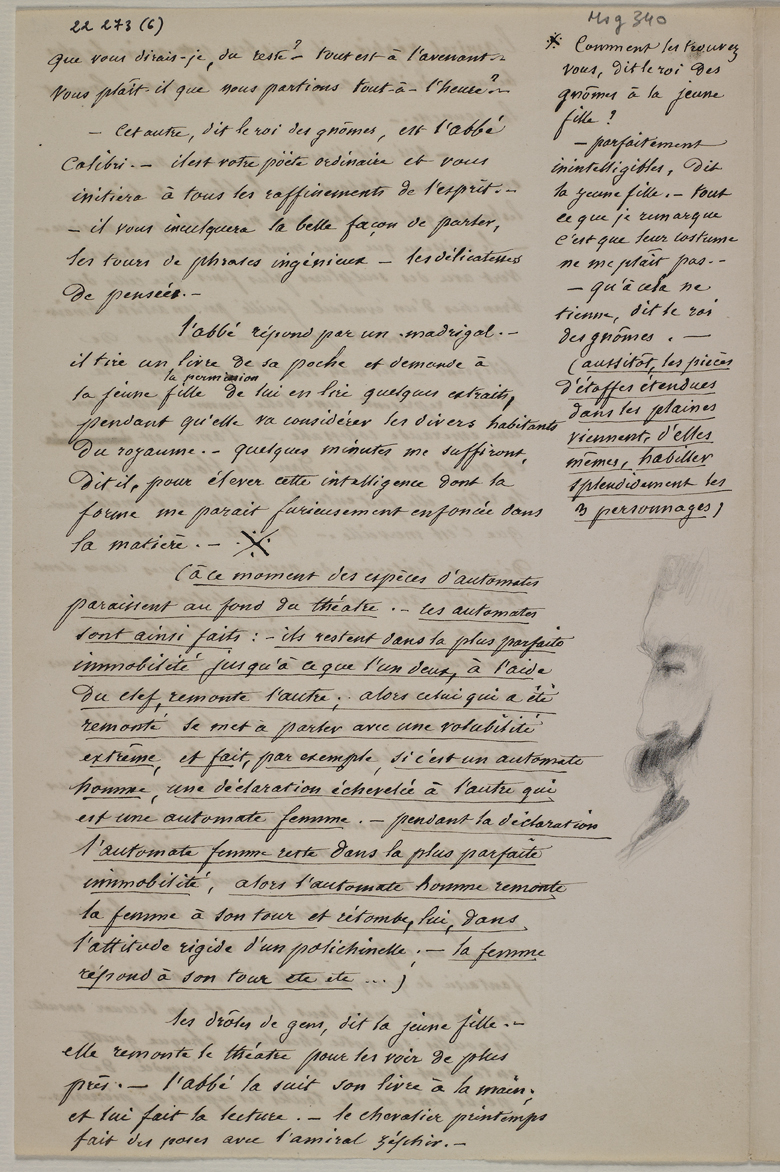 22 273 (6)
Msg 340
que vous dirais-je, du reste? - tout est à l'avenant. -
vous plaît-il que nous partions tout-à-l'heure? -
- Cet autre, dit le roi des gnômes, est l'abbé
Colibri. - il est votre poëte ordinaire et vous
initiera à tous les raffinements de l'esprit. -
- il vous inculquera la belle façon de parler,
les tours de phrases ingénieux - les délicatesses
de pensées. -
l'abbé répond par un madrigal. -
il tire un livre de sa poche et demande à
la permission
la jeune fille de lui en lire quelques extraits,
pendant qu'elle va considérer les divers habitants
du royaume. - quelques minutes me suffiront,
dit il, pour élever cette intelligence dont la
forme me parait furieusement enfoncée dans
la matière. - ※
(à ce moment des espèces d'automates
paraissent au fond du théatre. - les automates
sont ainsi faits : - ils restent dans la plus parfaite
immobilité jusqu'à ce que l'un deux, à l'aide
du clef, remonte l'autre ; alors celui qui a été
remonté se met à parler avec une volubilité
extrême, et fait, par exemple, si c'est un automate
homme, une déclaration échevelée à l'autre qui
est une automate femme. - pendant la déclaration
l'automate femme reste dans la plus parfaite
immobilité, alors l'automate homme remonte
la femme à son tour et rétombe, lui, dans
l'attitude rigide d'un polichinelle ; - la femme
répond à son tour etc etc ... )
les drôles de gens, dit la jeune fille. -
elle remonte le théatre pour les voir de plus
près. - l'abbé la suit son livre à la main,
et lui fait la lecture. - le chevalier printemps
fait des poses avec l'amiral zéphir. -
※ Comment les trouvez
vous, dit le roi des
gnômes à la jeune
fille ?
- parfaitement
inintelligibles, dit
la jeune fille. - tout
ce que je remarque
c'est que leur costume
ne me plaît pas. -
- qu'à cela ne
tienne, dit le roi
des gnômes. -
(aussitôt, les pièces
d'étoffes étendues
dans les plaines
viennent, d'elles
mêmes, habiller
splendidement les
3 personnages)